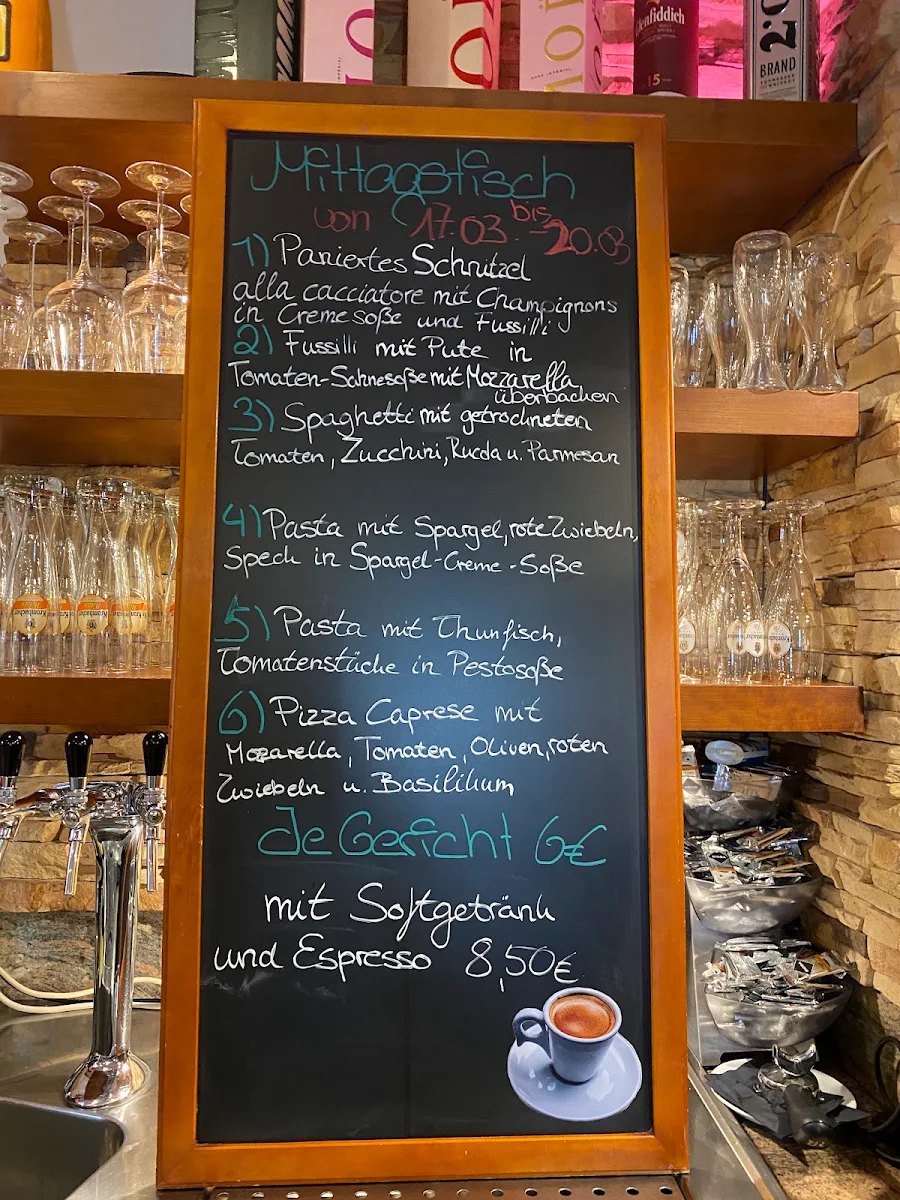 enfiddich
15
BRAND
Mittagstisch
von 17.03. bis - 20.03
1) Paniertes Schnitzel
alla cacciatore mit Champignons
in Cremesoße und Fussilli
2) Fussilli mit Pute in
Tomaten-Sahnesoße mit Mozzarella
überbacken
3) Spaghetti mit getrockneten
Tomaten, Zucchini, Rucola u. Parmesan
4) Pasta mit Spargel, rote Zwiebeln,
Speck in Spargel-Creme-Soße
5) Pasta mit Thunfisch,
Tomatenstücke in Pestosoße
6) Pizza Caprese mit
Mozarella, Tomaten, Oliven, roten
Zwiebeln u. Basilikum
Je Gericht 6€
mit Softgetränk
und Espresso 8,50€
Krombacher